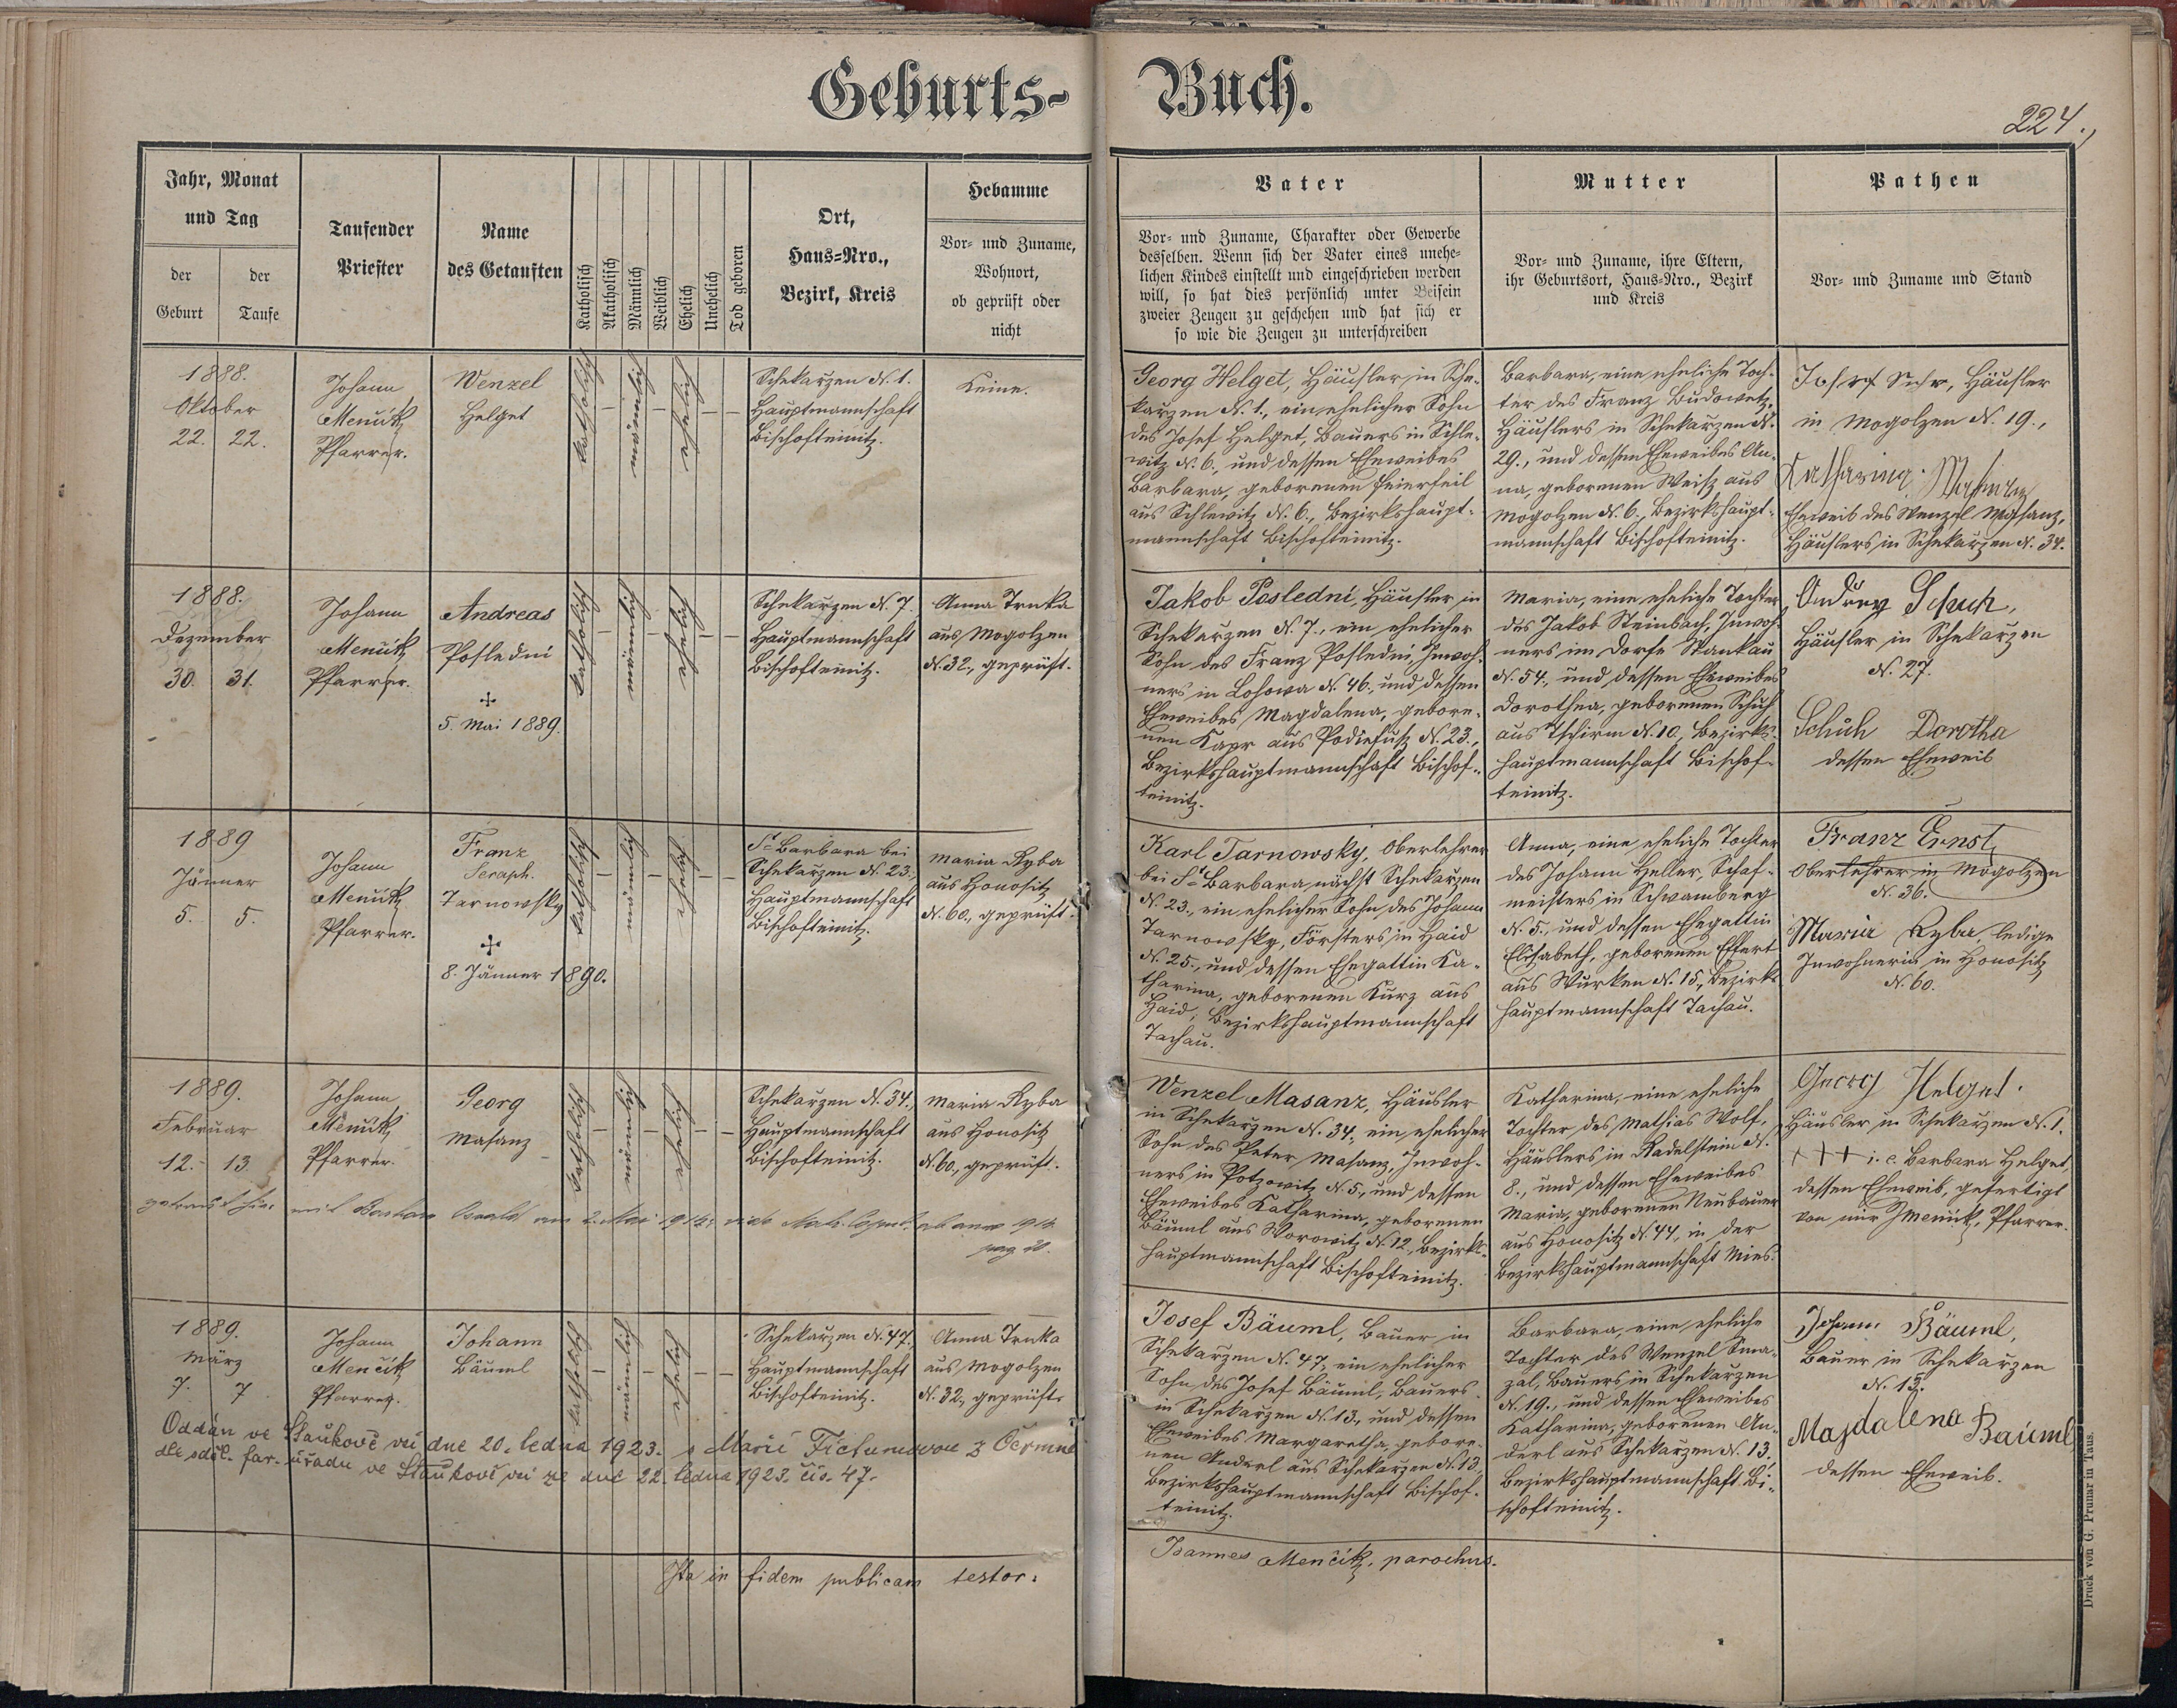 Geburts-
Buch.
224.,
Jahr, Monat
und Tag
der
Geburt
der
Taufe
Taufender
Priester
Name
des Getauften
Katholisch
Akatholisch
Männlich
Weiblich
Ehelich
Unehelich
Tod geboren
Ort,
Haus-Nro.,
Bezirk, Kreis
Hebamme
Vor- und Zuname,
Wohnort,
ob geprüft oder
nicht
Vater
Vor- und Zuname, Charakter oder Gewerbe
desselben. Wenn sich der Vater eines unehe-
lichen Kindes einstellt und eingeschrieben werden
will, so hat dies persönlich unter Beisein
zweier Zeugen zu geschehen und hat sich er
so wie die Zeugen zu unterschreiben
Mutter
Vor- und Zuname, ihre Eltern,
ihr Geburtsort, Haus-Nro., Bezirk
und Kreis
Pathen
Vor- und Zuname und Stand
1888.
Oktober
22. 22.
Johann
Menčik
Pfarrer.
Wenzel
Helget
katholisch
männlich
ehelich
Schekarzen N. 1.
Hauptmannschaft
Bischofteinitz.
Keine.
Georg Helget, Häusler in Sche-
karzen N. 1., ein ehelicher Sohn
des Josef Helget, Bauers in Schle-
witz N. 6., und dessen Eheweibes
Barbara, geborenen Feierfeil
aus Schlewitz N. 6., Bezirkshaupt-
mannschaft Bischofteinitz.
Barbara, eine eheliche Toch-
ter des Franz Budowetz,
Häuslers in Schekarzen N.
29., und dessen Eheweibes An-
na, geborenen Weiß aus
Mogolzen N. 6., Bezirkshaupt-
mannschaft Bischofteinitz.
Josef, Häusler
in Mogolzen N. 19.,
Katharina Masanz
Eheweib des Wenzel Masanz,
Häuslers in Schekarzen N. 34.
1888.
Dezember
30. 31.
Johann
Menčik
Pfarrer.
Andreas
Posledni
+
5. Mai 1889.
katholisch
männlich
ehelich
Schekarzen N. 7.
Hauptmannschaft
Bischofteinitz.
Anna Trnka
aus Mogolzen
N. 32., geprüft.
Jakob Posledni, Häusler in
Schekarzen N. 7., ein ehelicher
Sohn des Franz Posledni, Inwoh-
ners in Lohowa N. 46., und dessen
Eheweibes Magdalena, gebore-
nen Kapr aus Podiefuß N. 23.,
Bezirkshauptmannschaft Bischof-
teinitz.
Maria, eine eheliche Tochter
des Jakob Steinbach, Inwoh-
ners im Dorfe Stankau
N. 54., und dessen Eheweibes
Dorothea, geborenen Schuh
aus Tschirm N. 10., Bezirks-
hauptmannschaft Bischof-
teinitz.
Andrey Schuh,
Häusler in Schekarzen
N. 27.
Schuh Dorotha
dessen Eheweib
1889
Jänner
5. 5.
Johann
Menčik
Pfarrer.
Franz
Seraph.
Tarnowsky
+
8. Jänner 1890.
katholisch
männlich
ehelich
St. Barbara bei
Schekarzen N. 23.,
Hauptmannschaft
Bischofteinitz.
Maria Ryba
aus Honositz
N. 60., geprüft.
Karl Tarnowsky, Oberlehrer
bei St. Barbara nächst Schekarzen
N. 23., ein ehelicher Sohn des Johann
Tarnowsky, Försters in Haid
N. 25., und dessen Ehegattin Ka-
tharina, geborenen Kurz aus
Haid, Bezirkshauptmannschaft
Tachau.
Anna, eine eheliche Tochter
des Johann Heller, Schaf-
meisters in Schwamberg
N. 5., und dessen Ehegattin
Elisabeth, geborenen Effert
aus Wurken N. 15., Bezirks-
hauptmannschaft Tachau.
Franz Ernst,
Oberlehrer in Mogolzen
N. 36.
Maria Ryba, ledige
Inwohnerin in Honositz
N. 60.
1889.
Februar
12. 13.
Johann
Menčik
Pfarrer.
Georg
Masanz
katholisch
männlich
ehelich
Schekarzen N. 34.,
Hauptmannschaft
Bischofteinitz.
Maria Ryba
aus Honositz
N. 60., geprüft.
getraut hier mit Barbara Oswald am 2. Mai 1914, vide Matr. Copul. ab anno 1914
pag 20.
Wenzel Masanz, Häusler
in Schekarzen N. 34., ein ehelicher
Sohn des Peter Masanz, Inwoh-
ners in Potzowitz N. 5., und dessen
Eheweibes Katharina, geborenen
Bäuml aus Worowitz N. 12., Bezirks-
hauptmannschaft Bischofteinitz.
Katharina, eine eheliche
Tochter des Mathias Wolf,
Häuslers in Radelstein N.
8., und dessen Eheweibes
Maria, geborenen Neubauer
aus Honositz N. 44, in der
Bezirkshauptmannschaft Mies.
Georg Helget.
Häusler in Schekarzen N. 1.
+++ i. e. Barbara Helget,
dessen Eheweib, gefertigt
von mir J Menčik, Pfarrer.
1889.
März
7. 7
Johann
Menčik
Pfarrer.
Johann
Bäuml
katholisch
männlich
ehelich
Schekarzen N. 47.,
Hauptmannschaft
Bischofteinitz.
Anna Trnka
aus Mogolzen
N. 32., geprüft.
Oddán ve Staňkově vsi dne 20. ledna 1923. s Marií Fictumovou z Čermné
dle sděl. far. úřadu ve Staňkově vsi ze dne 22. ledna 1923. čís. 47.
Josef Bäuml, Bauer in
Schekarzen N. 47., ein ehelicher
Sohn des Josef Bäuml, Bauers
in Schekarzen N. 13., und dessen
Eheweibes Margaretha, gebore-
nen Anderl aus Schekarzen N. 13.,
Bezirkshauptmannschaft Bischof-
teinitz.
Barbara, eine eheliche
Tochter des Wenzel Sma-
zal, Bauers in Schekarzen
N. 19., und dessen Eheweibes
Katharina, geborenen An-
derl aus Schekarzen N. 13.,
Bezirkshauptmannschaft Bi-
schofteinitz.
Johann Bäuml,
Bauer in Schekarzen
N. 13.
Magdalena Bäuml
dessen Eheweib.
Ita in fidem publicam testor:
Joannes Menčik, parochus.
Druck von G. Prunar in Taus.